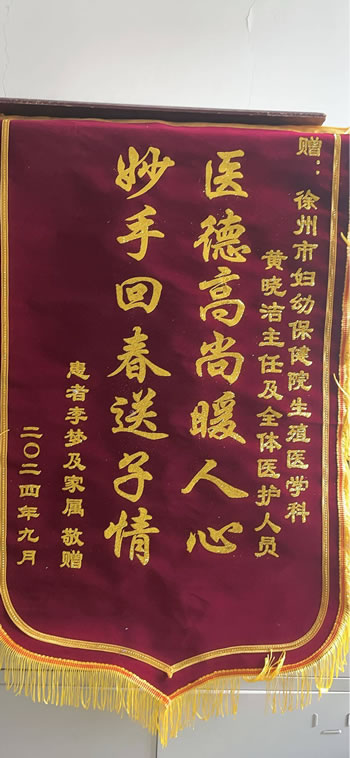 赠：徐州市妇幼保健院生殖医学科
黄晓洁主任及全体医护人员
医德高尚暖人心
妙手回春送子情
患者李梦及家属 敬赠
二〇二四年九月